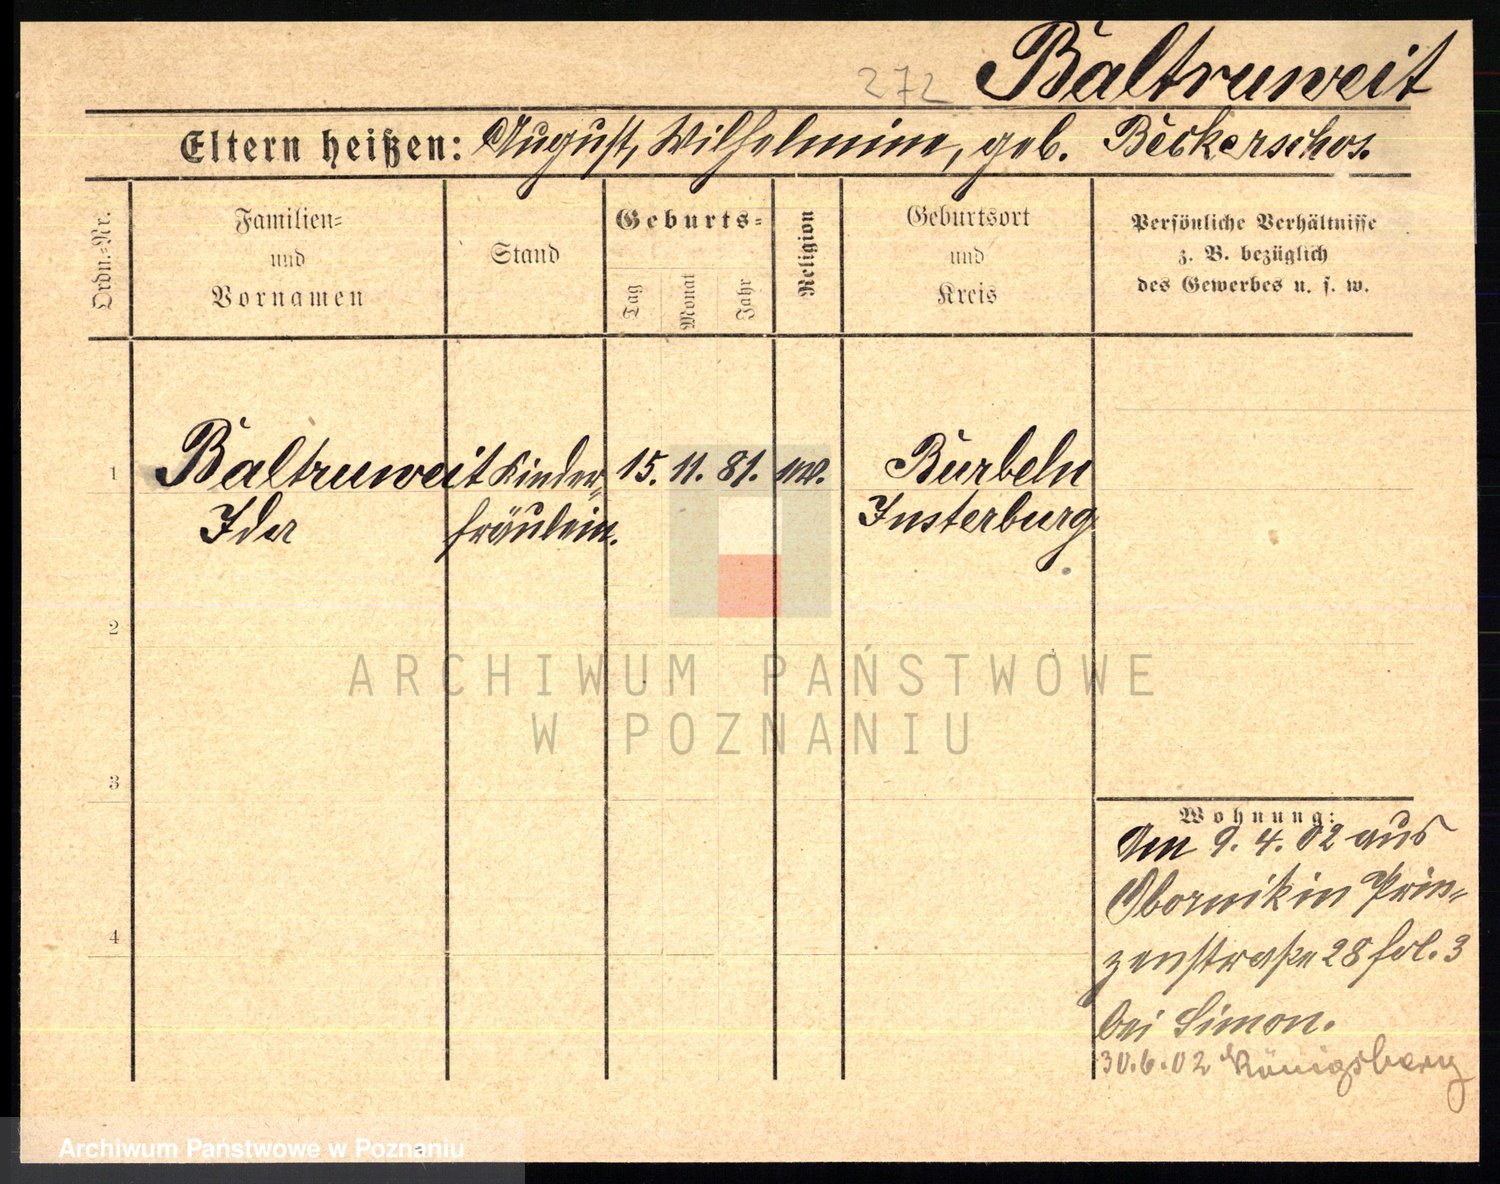 272 Baltruweit
Eltern heißen: August, Wilhelmine, geb. Beckerschos.
Ordn.-Nr.
Familien-
und
Vornamen
Stand
Geburts-
Tag
Monat
Jahr
Religion
Geburtsort
und
Kreis
Persönliche Verhältnisse
z. B. bezüglich
des Gewerbes u. s. w.
1 Baltruweit Kinder- 15. 11. 81. ev. Burbeln
Ida fräulein. Insterburg
2
ARCHIWUM PAŃSTWOWE
W POZNANIU
3
Wohnung:
Am 9. 4. 02 aus
Obornik in Prin-
4
zenstraße 28 fol. 3
bei Simon.
30.6.02 Königsberg
Archiwum Państwowe w Poznaniu